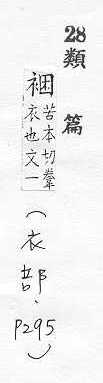 28 類篇
裍苦本切
衣也文一
(衣部、P295)